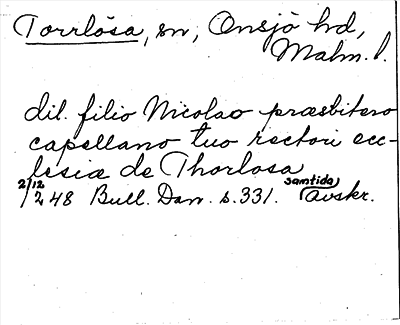 Torrlösa, sn, Onsjö hd,
Malm. l.
dil. filio Nicolao præsbitero
capellano tuo rectori ecc-
lesiæ de Thorlosa
2/12 1248 Bull. Dan. s. 331. samtida avskr.